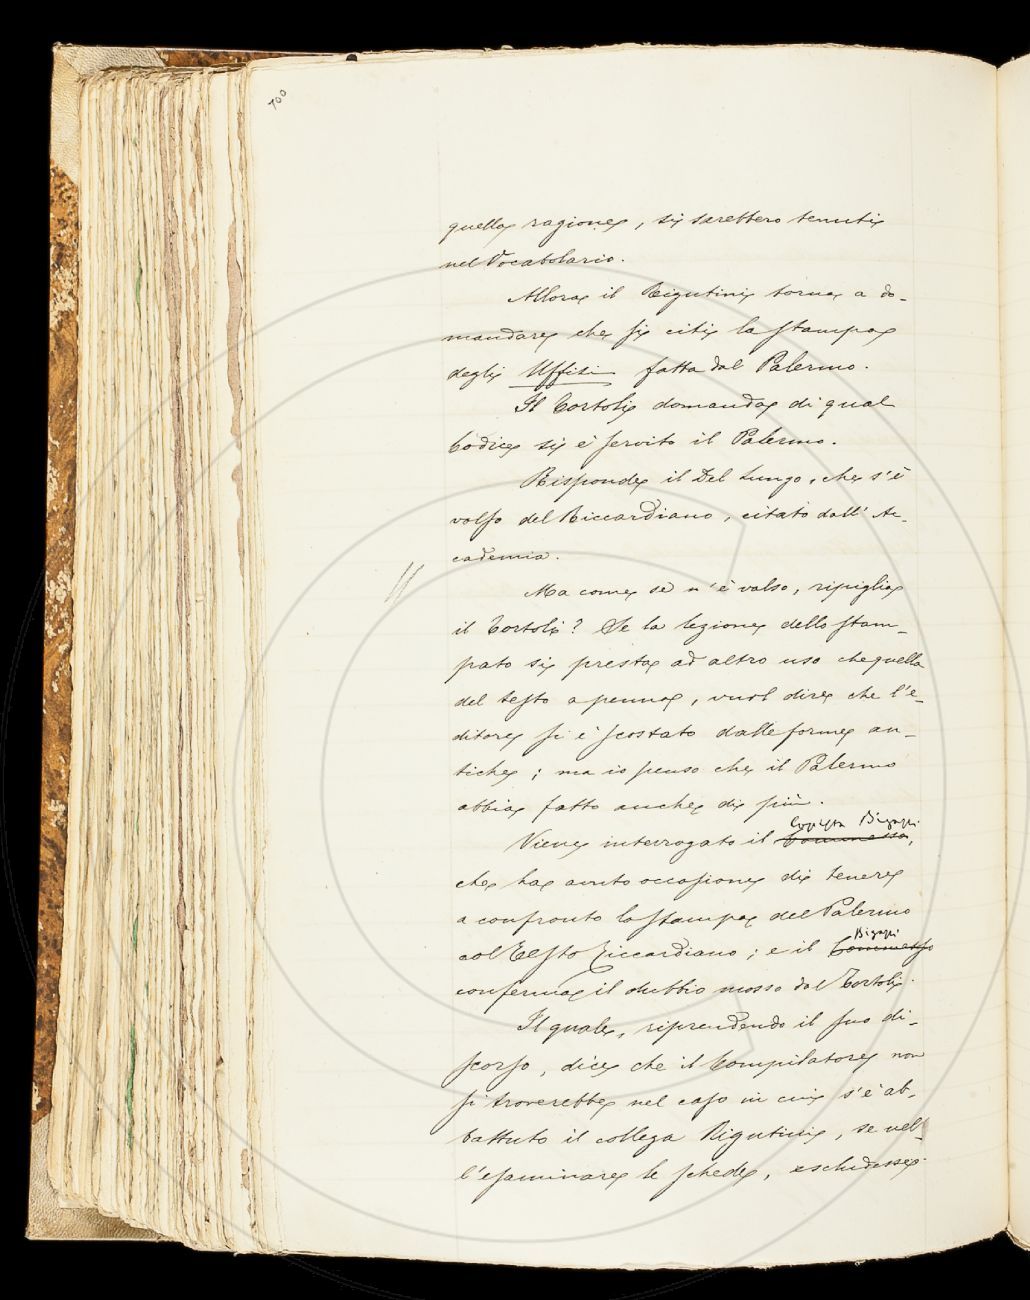 700
quella ragione, si sarebbero tenuti
nel Vocabolario.
Allora il Rigutini torna a do-
mandare che si citi la stampa
degli Uffizi fatta dal Palermo.
Il Tortoli domanda di qual
Codice si è servito il Palermo.
Risponde il Del Lungo, che s'è
valso del Riccardiano, citato dall' Ac-
cademia.
Ma come se n'è valso, ripiglia
il Tortoli? Se la lezione dello stam-
pato si presta ad altro uso che quella
del testo a penna, vuol dire che l'e-
ditore si è scostato dalle forme an-
tiche; ma io penso che il Palermo
abbia fatto anche di più.
Copista Bigazzi
Viene interrogato il
che ha avuto occasione di tenere
a confronto la stampa del Palermo
Bigazzi
col Testo Riccardiano; e il Commesso
conferma il dubbio mosso dal Tortoli.
Il quale, riprendendo il suo di-
scorso, dice che il Compilatore non
si troverebbe nel caso in cui s'è ab-
battuto il collega Rigutini, se nel-
l'esaminare le schede, escludesse